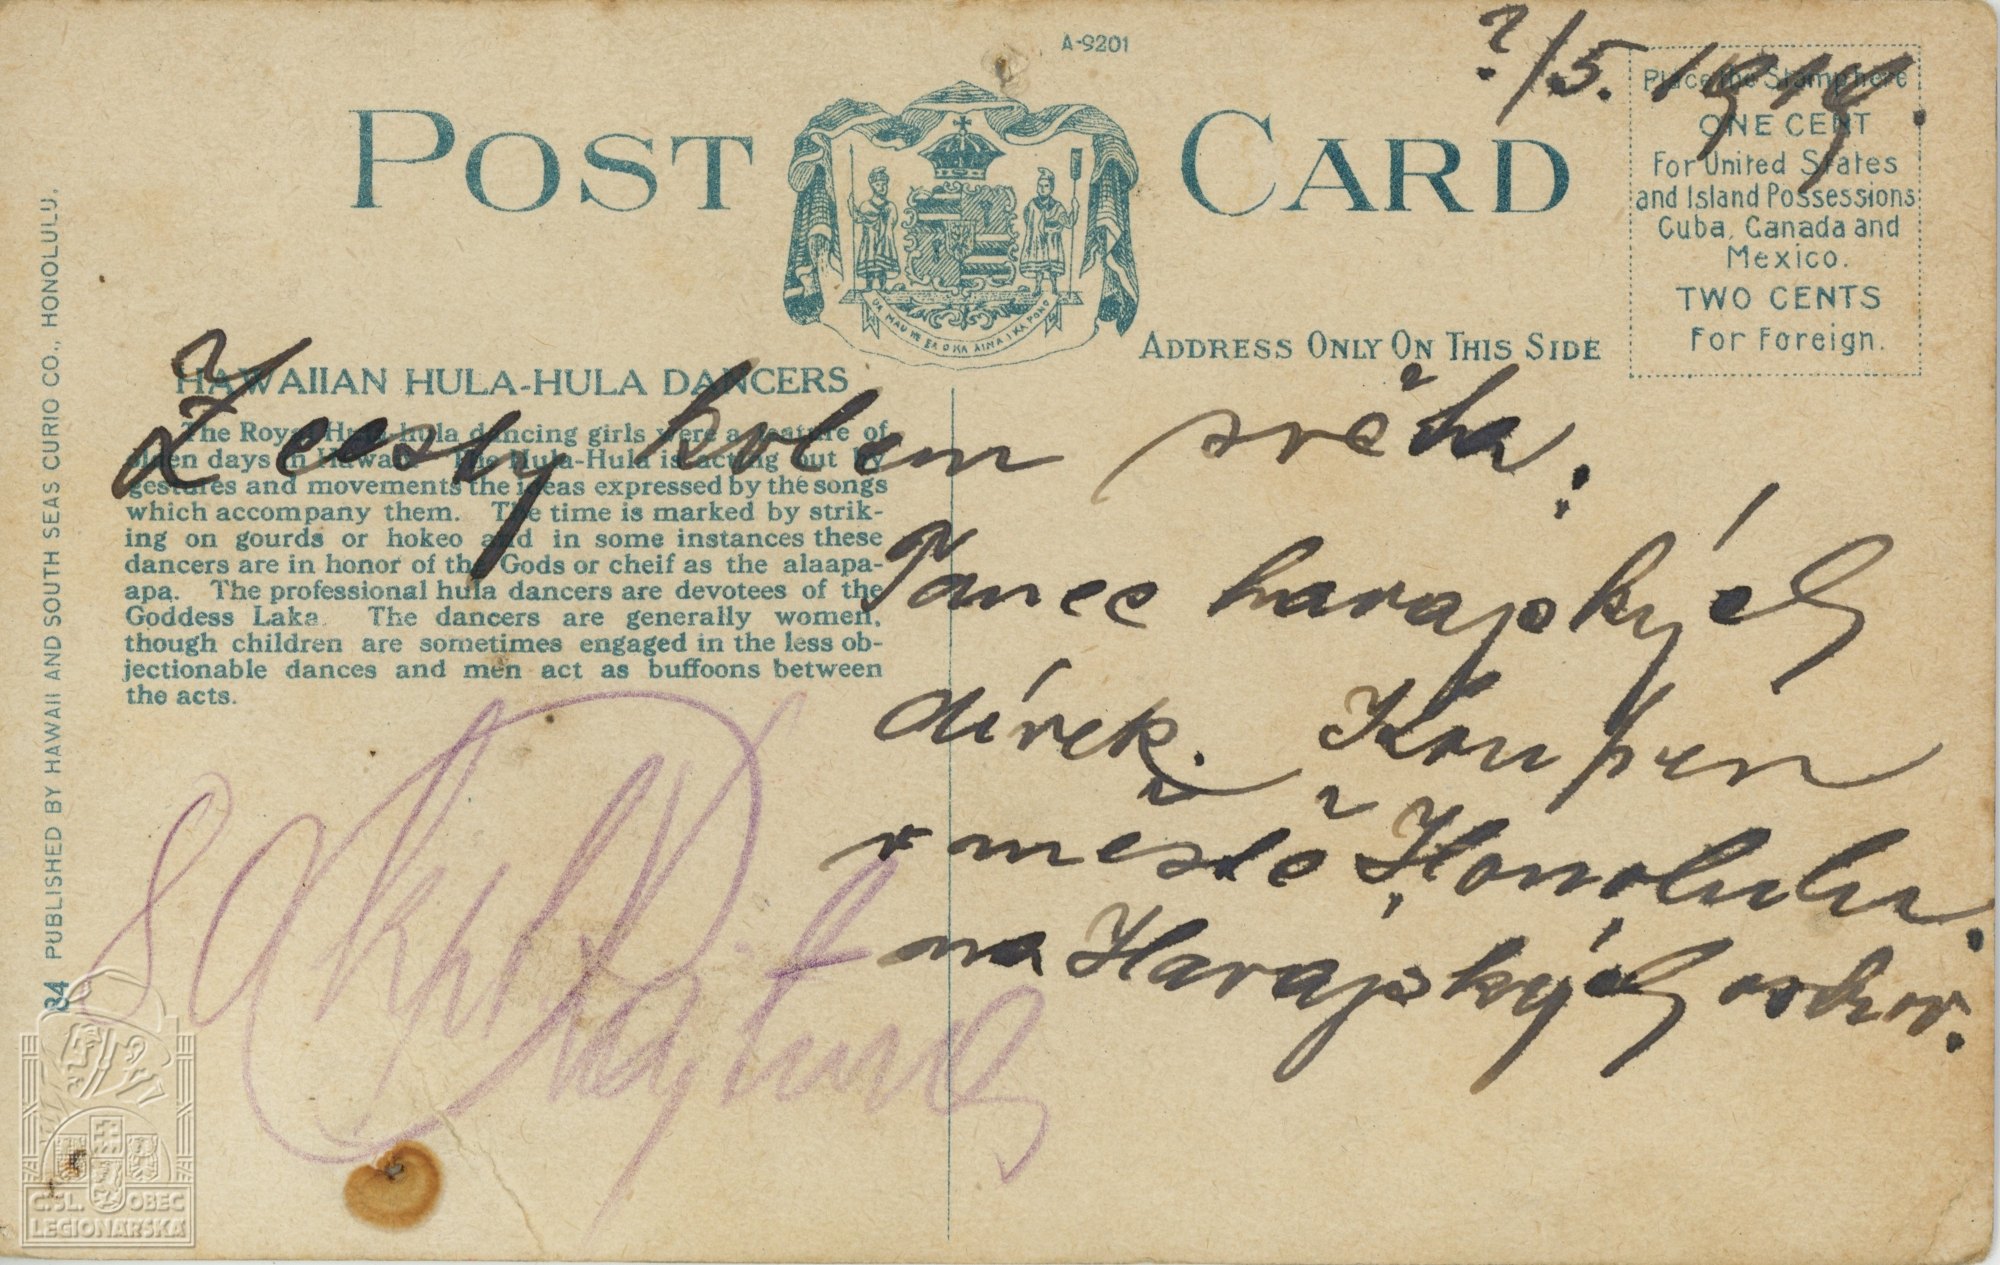 A-9201
?/5. 1919.
POST CARD
Place the Stamp here
ONE CENT
For United States
and Island Possessions
Cuba, Canada and
Mexico.
TWO CENTS
For Foreign.
UA MAU KE EA O KA AINA I KA PONO
ADDRESS ONLY ON THIS SIDE
HAWAIIAN HULA-HULA DANCERS
The Royal Hula hula dancing girls were a feature of
olden days in Hawaii. The Hula-Hula is acting out by
gestures and movements the ideas expressed by the songs
which accompany them. The time is marked by strik-
ing on gourds or hokeo and in some instances these
dancers are in honor of the Gods or cheif as the alaapa-
apa. The professional hula dancers are devotees of the
Goddess Laka. The dancers are generally women,
though children are sometimes engaged in the less ob-
jectionable dances and men act as buffoons between
the acts.
Z cesty kolem světa:
Tanec havajských
dívek. Koupen
v mestě Honolulu.
na Havajských ostrov.
84 PUBLISHED BY HAWAII AND SOUTH SEAS CURIO CO., HONOLULU.
Č.SL. OBEC
LEGIONÁŘSKÁ